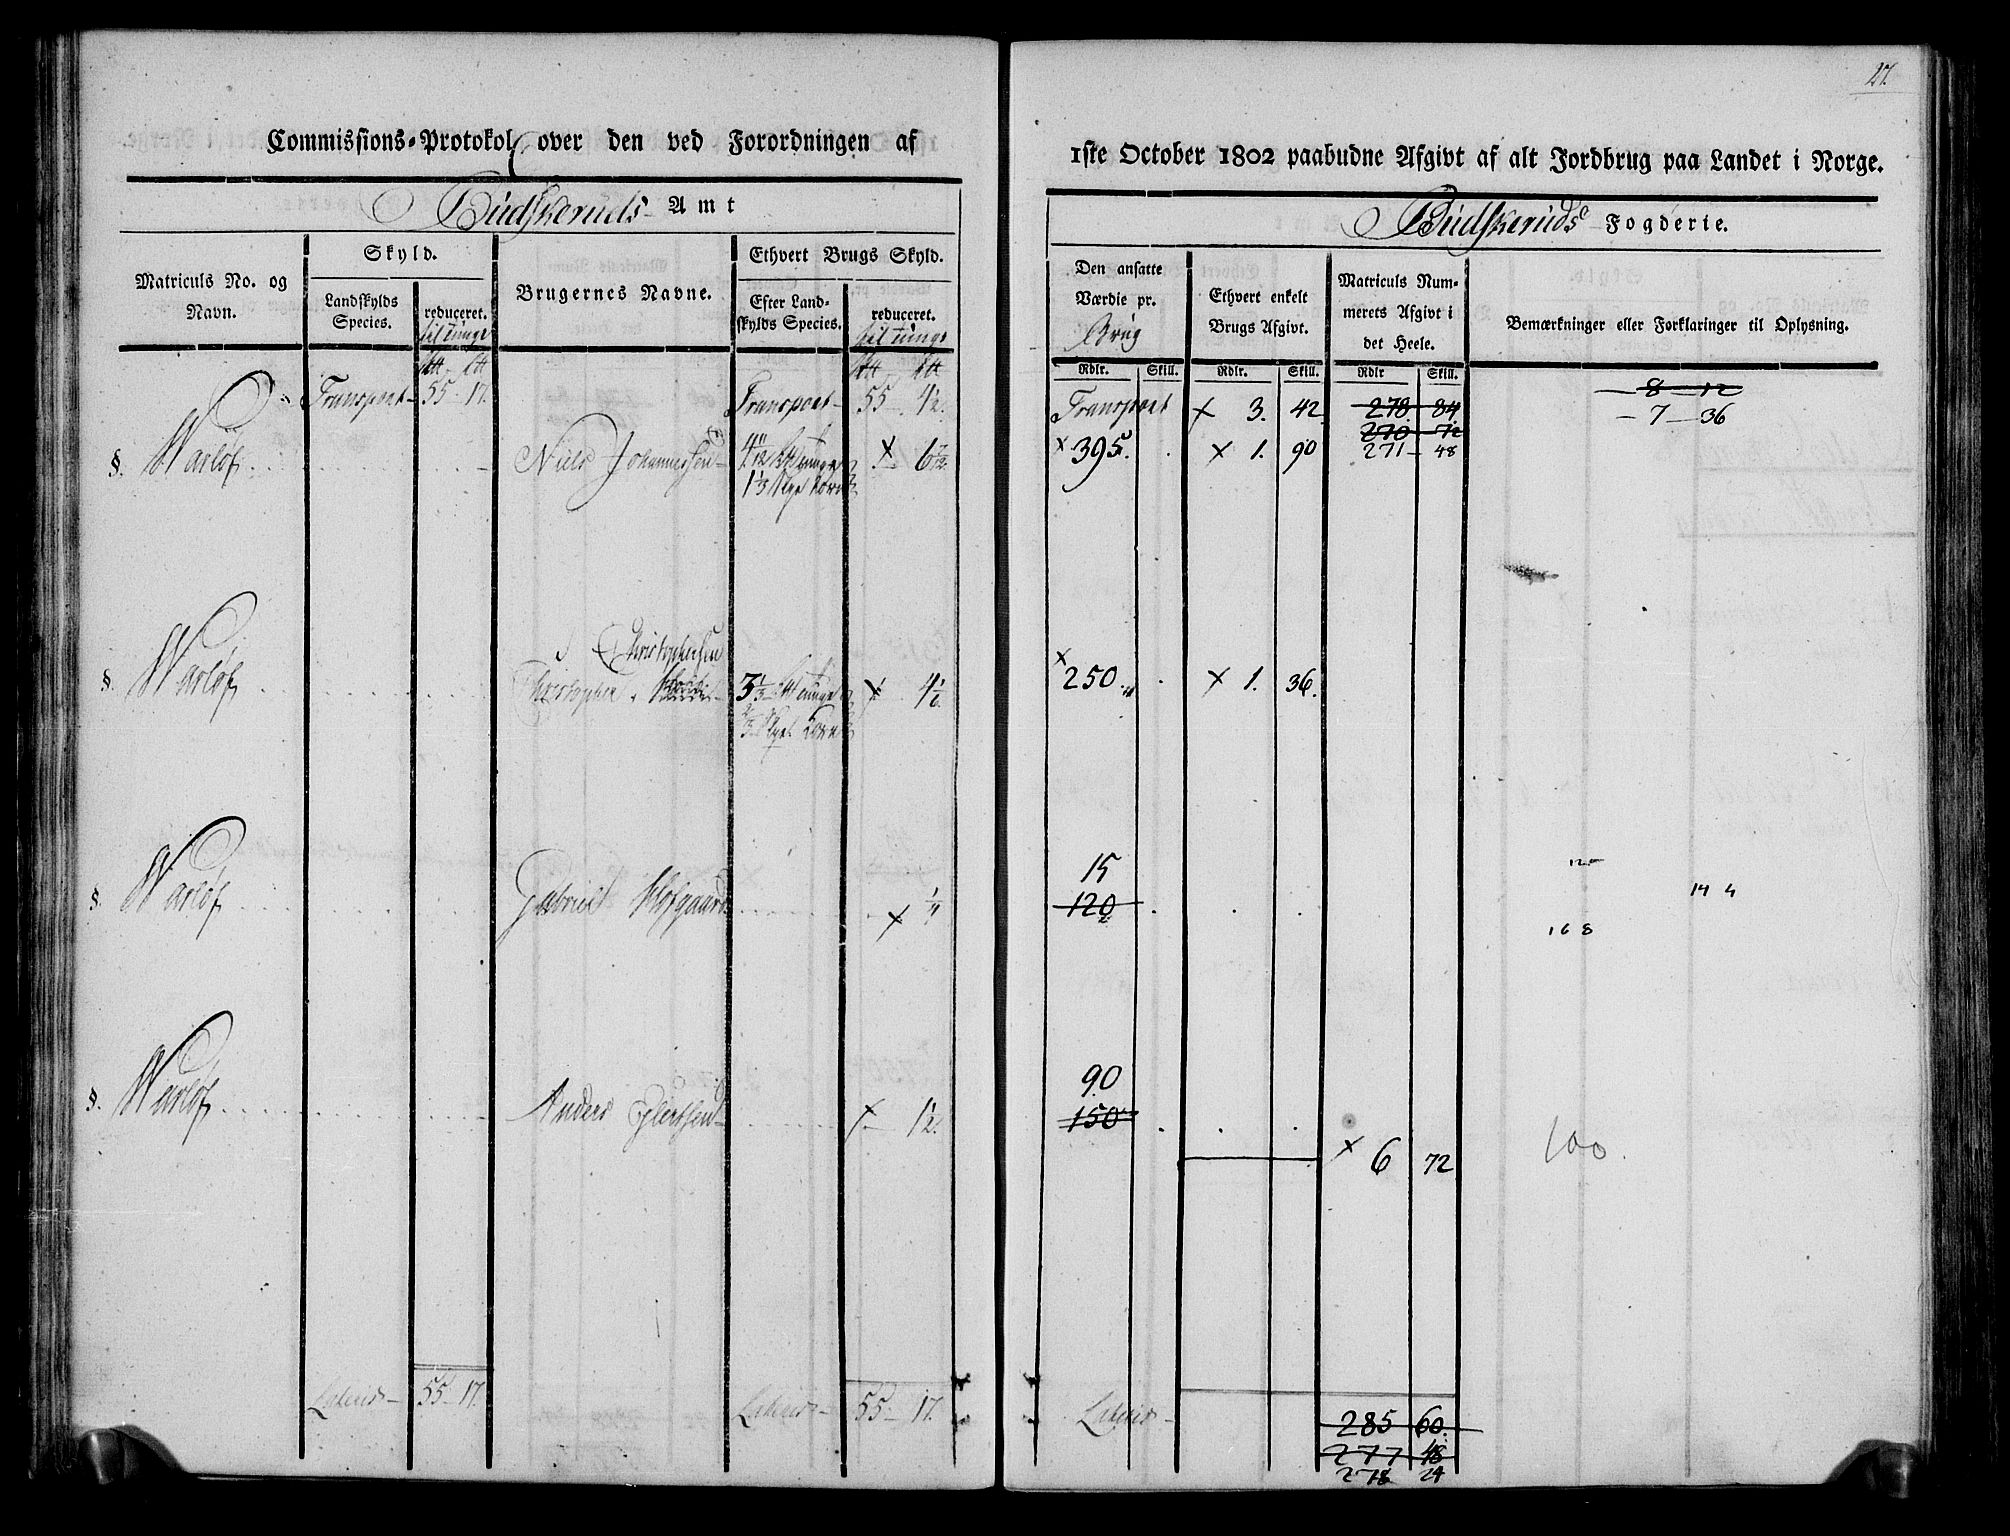 27.
Commissions-Protokol over den ved Forordningen af
1ste October 1802 paabudne Afgivt af alt Jordbrug paa Landet i Norge.
Budskeruds Amt
Budskeruds Fogderie.
Matriculs No. og Navn.
Skyld.
Landskylds Species.
reduceret. til Tunge
Brugernes Navne.
Ethvert Brugs Skyld.
Efter Landskylds Species.
reduceret. til Tunge
Den ansatte Værdie pr. Brug
Ethvert enkelt Brugs Afgivt.
Matriculs Nummerets Afgivt i det Heele.
Bemærkninger eller Forklaringer til Oplysning.
Rdlr. Skill. Rdlr. Skill. Rdlr Skill.
Transport 55 17. Transport 55 4½. Transport × 3. 42. 278 84 8 12
270 72 7 36
§. Warløf Niels Johannessen 4 5/12 Tunge × 6 7/12. × 395. × 1. 90 271 48
1⅓ Korn
Christophersen
§. Warløf Christopher 3⅓ Tunge × 4 1/6. × 250. × 1. 36.
⅔ Korn
15
§. Warløf Gabriel Hofgaard × ¼ 120
12
14 4
16 8
90
§. Warløf Anders Eilertsen × 1½. 150
× 6 72 100
Lateris 55 17. Lateris 55 17. Lateris 285 60.
277 48
278 24